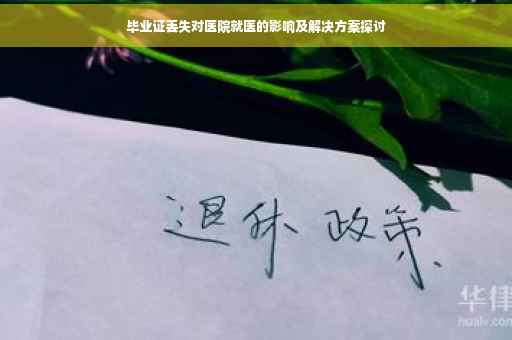 毕业证丢失对医院就医的影响及解决方案探讨
退休 政策
华律
hualv.com